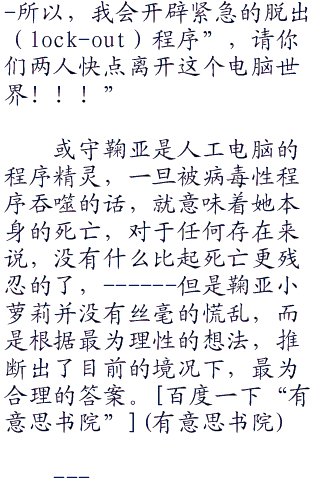 -所以，我会开辟紧急的脱出
（lock-out）程序”，请你
们两人快点离开这个电脑世
界！！！”
或守鞠亚是人工电脑的
程序精灵，一旦被病毒性程
序吞噬的话，就意味着她本
身的死亡，对于任何存在来
说，没有什么比起死亡更残
忍的了，------但是鞠亚小
萝莉并没有丝毫的慌乱，而
是根据最为理性的想法，推
断出了目前的境况下，最为
合理的答案。[百度一下“有
意思书院”](有意思书院)
---